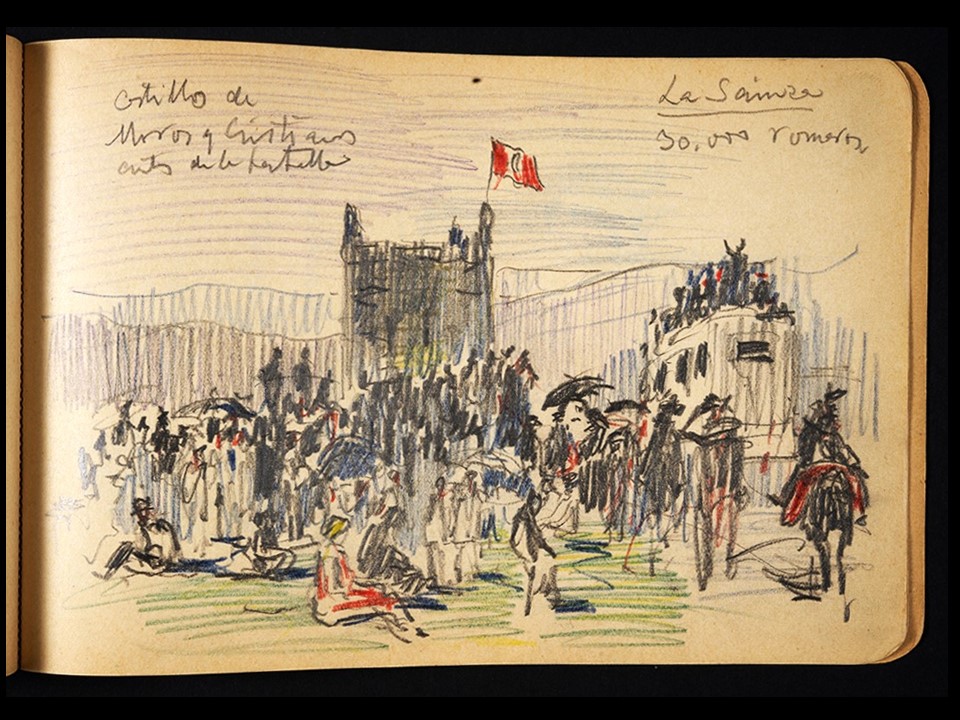 Castillo de
Moros y Cristianos
antes de la batalla
La Sainza
30.000 romeros